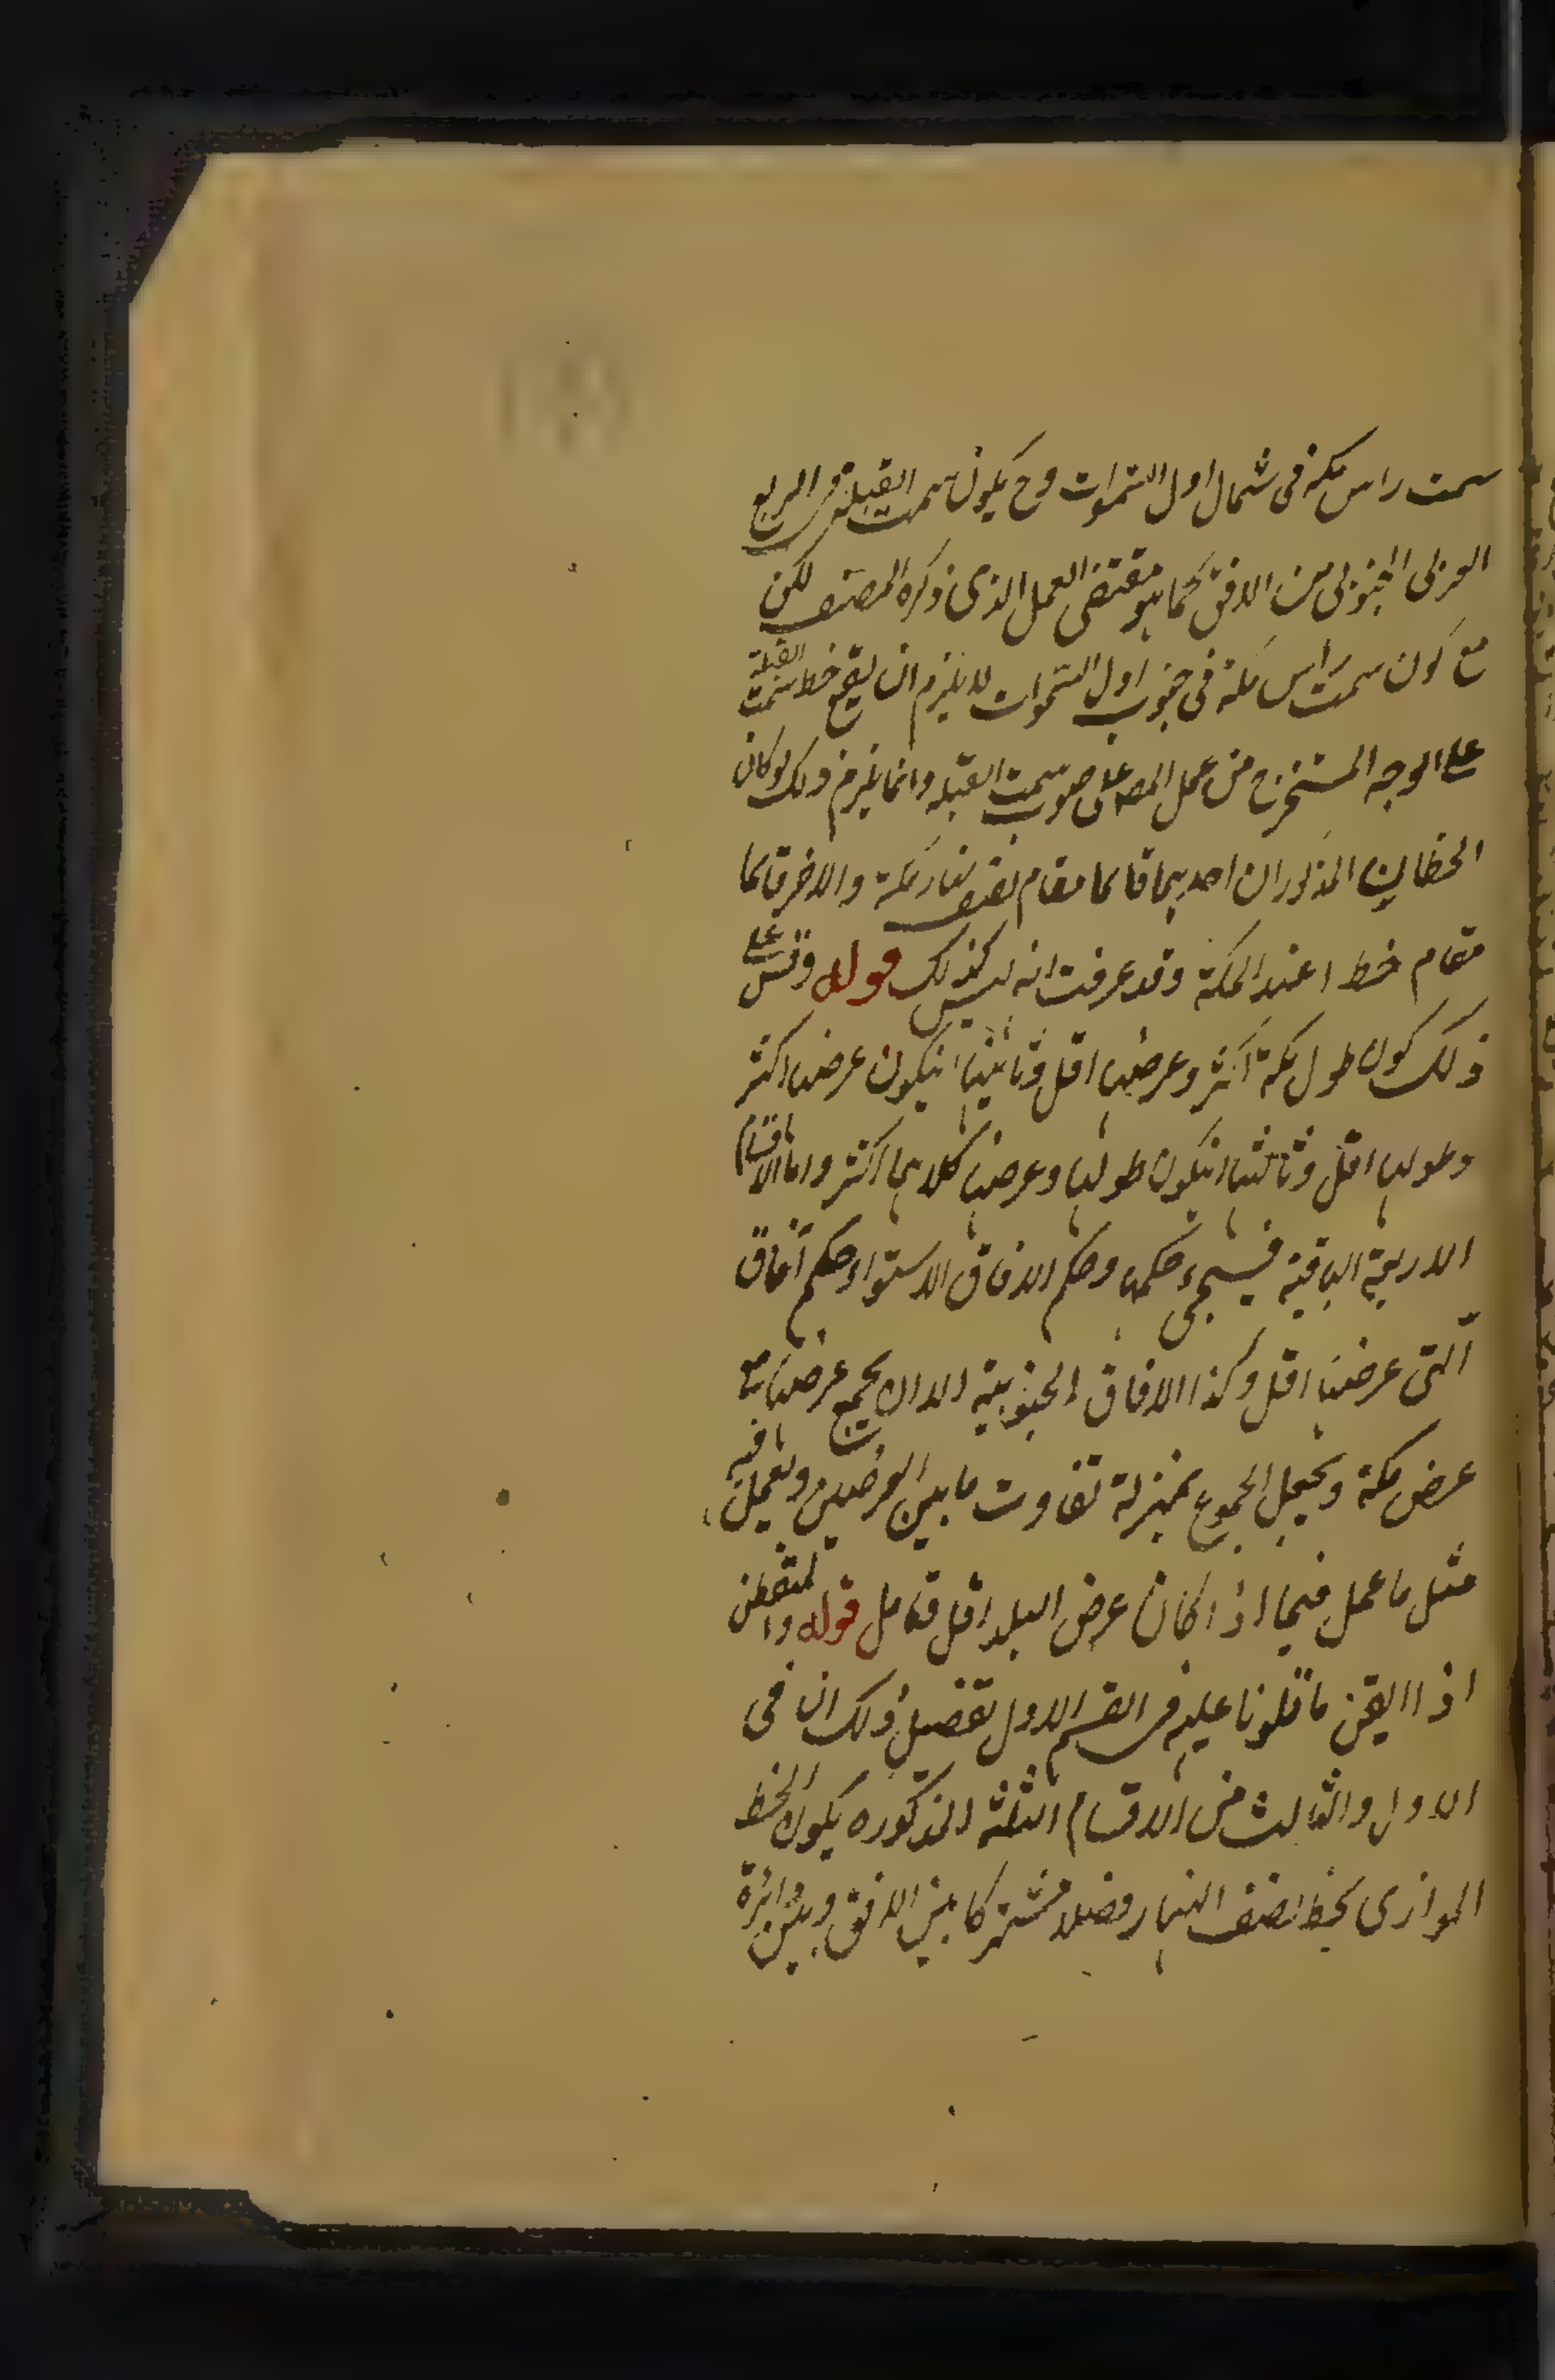 سمت راس مكة فى شمال اول السموات وح يكون سمت القبلة فى الربع
الغربى الجنوبى من الافق كما هو مقتضى العمل الذى ذكره المصنف لكن
مع كون سمت راس مكة فى جنوب اول السموات لا يلزم ان يقع خط سمت القبلة
على الوجه المستخرج من عمل المصـ على صوب سمت القبلة وانما يلزم ذلك لو كان
الخطان المذكوران احديهما قائما مقام نصف نهار مكة والاخر قائما
مقام خط اعتدال مكة وقد عرفت انه ليس كذلك قوله وقس على
ذلك كون طول مكة اكثر وعرضها اقل وثانيها ان يكون عرضها اكثر
وطولها اقل وثالثها ان يكون طولها وعرضها كلاهما اكثر واما الاقسام
الاربعة الباقية فسيجىء حكمها وحكم الافاق الاستواء حكم افاق
التى عرضها اقل وكذا الافاق الجنوبية الا ان يجمع عرضها مع
عرض مكة ويجعل المجموع بمنزلة تفاوت ما بين العرضين ويعمل فيه
مثل ما عمل فيما اذا كان عرض البلد اقل تامل قوله والمتفطن
اذا ايقن ما تلونا عليه فى القسم الاول تفصيل ذلك ان فى
الاول والثالث من الاقسام الثلثة المذكوره يكون الخط
الموازى لخط نصف النهار فصلا مشتركا بين الافق وبين دائرة